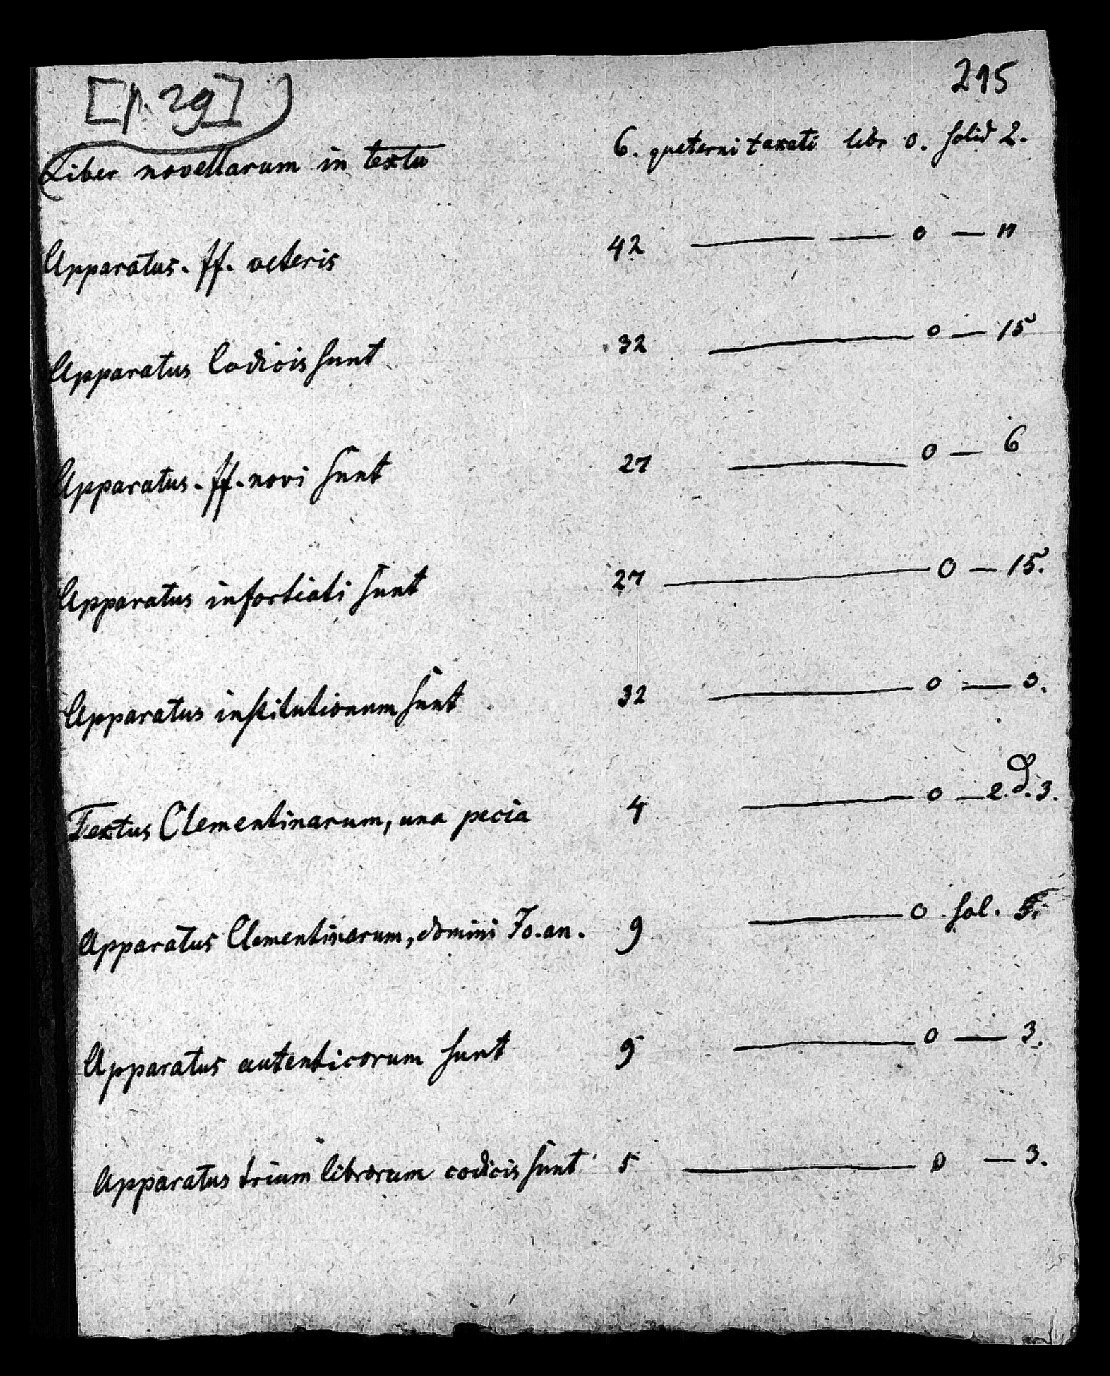 [p. 29]
215
Liber novellarum in textu 6. queterni taxati libr o. solid 2.
Apparatus. ff. veteris 42 — — o — n
Apparatus Codicis sunt 32 — o — 15
Apparatus. ff. novi sunt 27 — o — 6
Apparatus infortiati sunt 27 — o — 15.
Apparatus institutionum sunt 32 — o — 3.
Textus Clementinarum, una pecia 4 — o — 2. d. 3.
Apparatus Clementinarum, domini Jo. an. 9 — o sol. 5.
Apparatus autenticorum sunt 9 — o — 3.
Apparatus trium librorum codicis sunt 5 — o — 3.